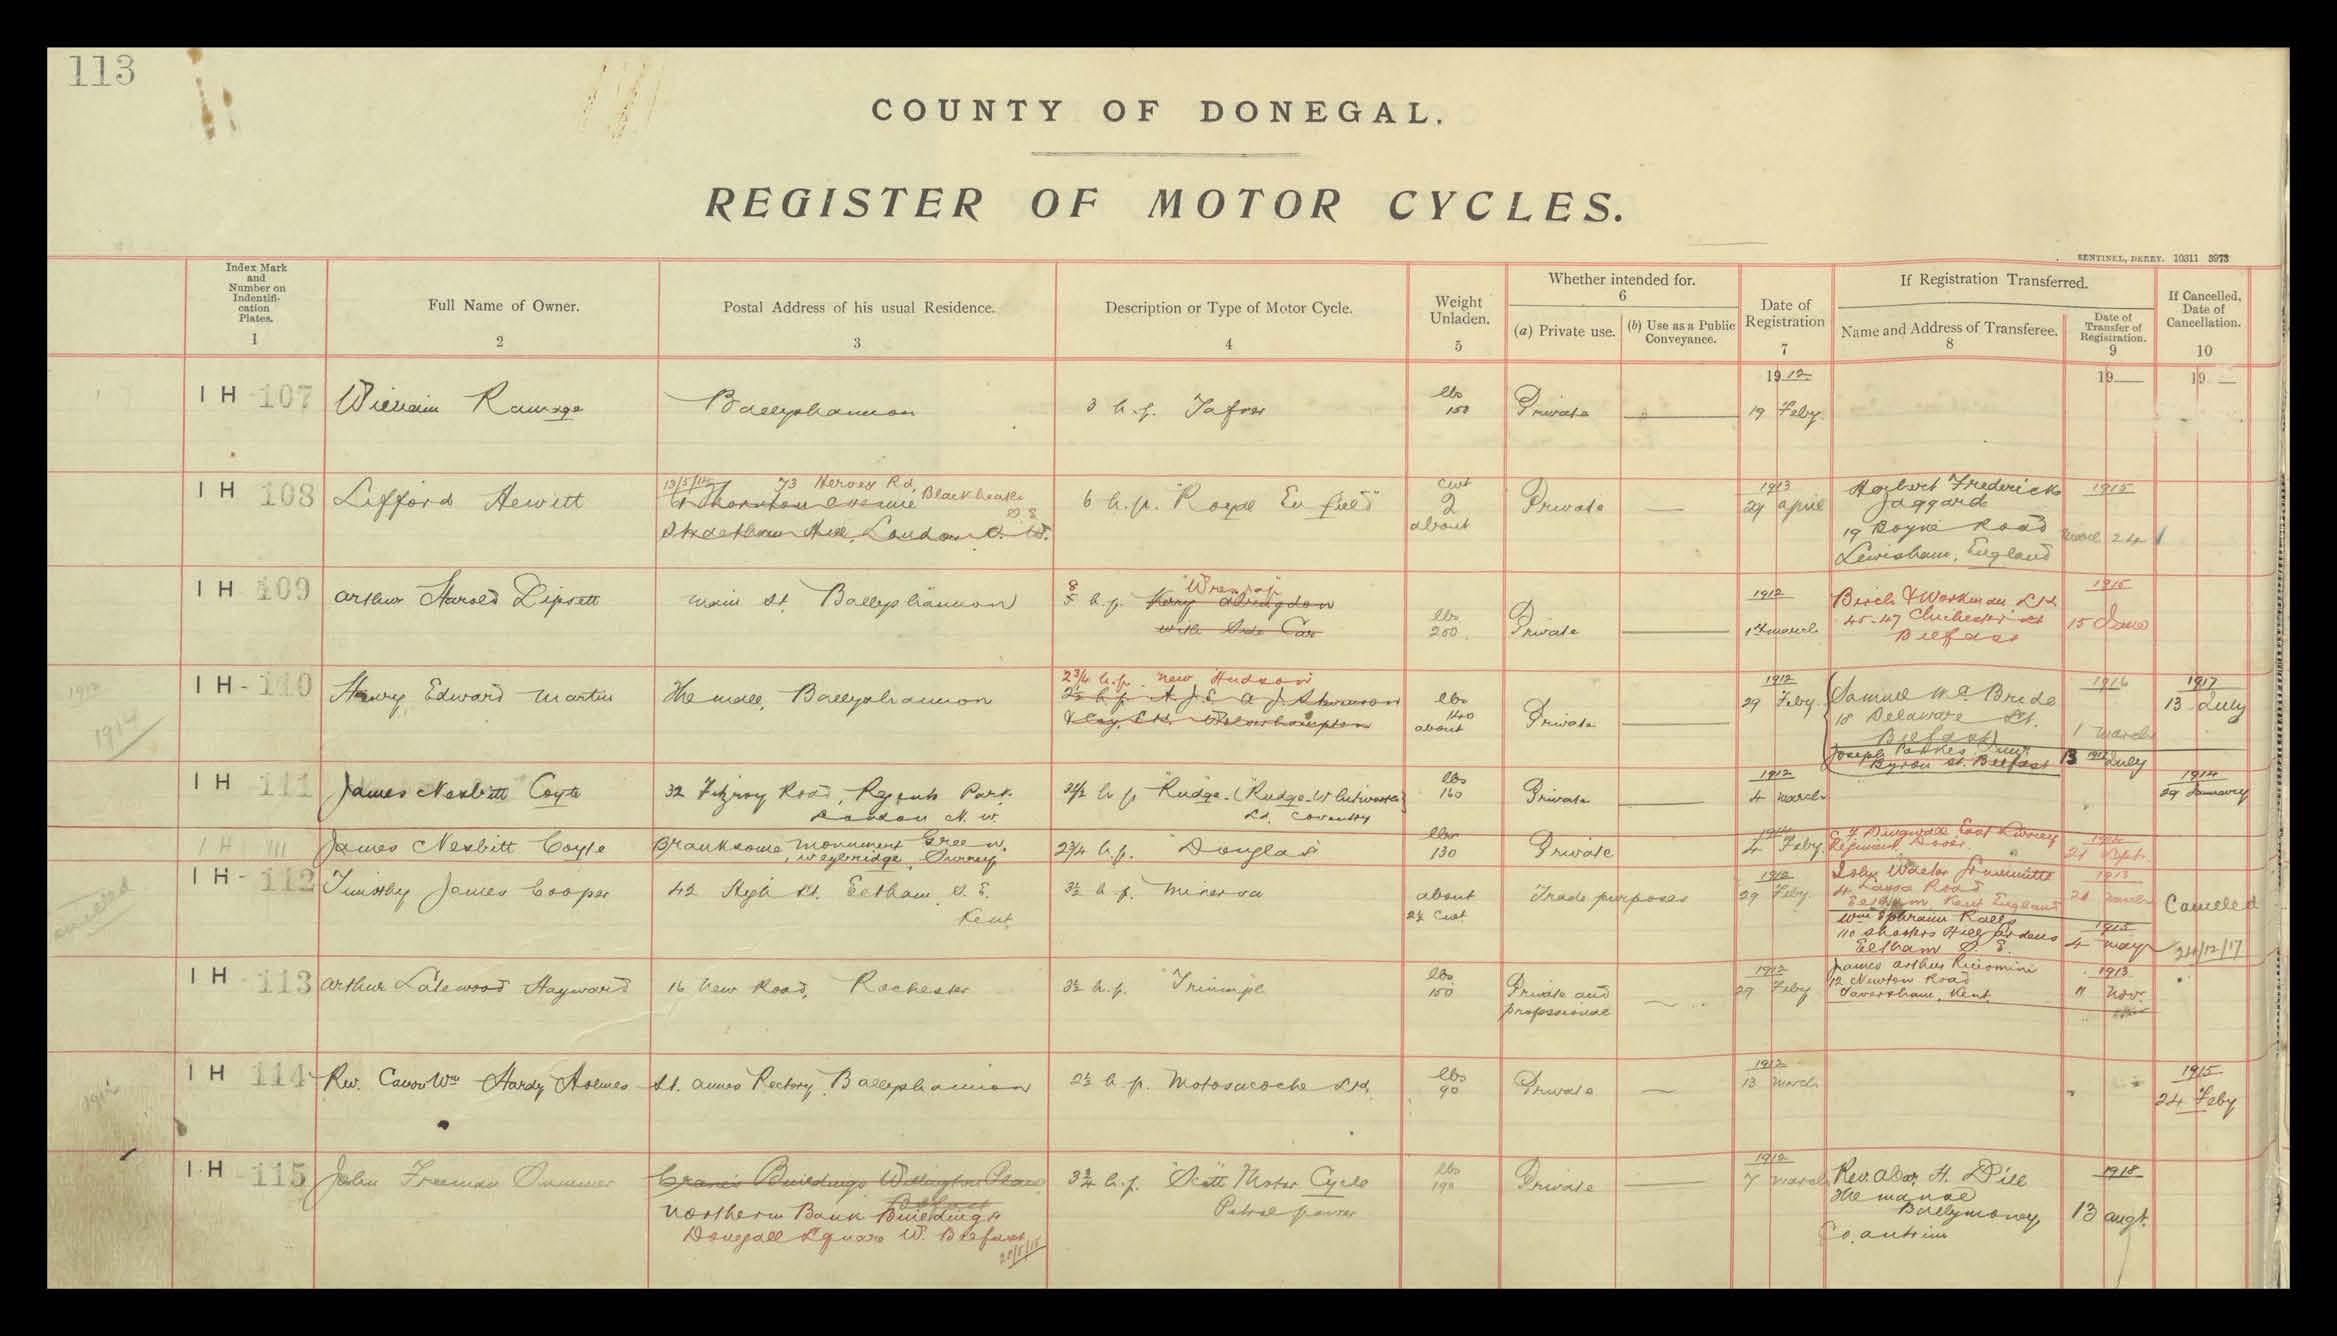 113
COUNTY OF DONEGAL.
REGISTER OF MOTOR CYCLES.
SENTINEL, DERRY. 10311 3973
Index Mark and Number on Indentifi- cation Plates. 1
Full Name of Owner. 2
Postal Address of his usual Residence. 3
Description or Type of Motor Cycle. 4
Weight Unladen. 5
Whether intended for. 6
(a) Private use.
(b) Use as a Public Conveyance.
Date of Registration 7
If Registration Transferred.
Name and Address of Transferee. 8
Date of Transfer of Registration. 9
If Cancelled, Date of Cancellation. 10
1912 19 19
IH 107 William Ramage Ballyshannon 3 h.p. lbs 150 Private 19 Feby
IH 108 Lifford Hewitt
13/5/14 73 Hervey Rd, Blackheath S E
Thornton Avenue
Streatham Hill, London S. W.
6 h.p. "Royal Enfield" cwt 2 about Private 1913 29 April
Herbert Frederick
Jaggard
19 Boyne Road
Lewisham, England
1915 March 24
IH 109 Arthur Harold Lipsett Main St. Ballyshannon
8 h.p. "Wrexop"
with Side Car
lbs 250 Private 1912 1st March
Birch & Workman Ltd
45-47 Chichester St
Belfast
1915 15 June
1912
1914
IH - 110 Henry Edward Martin The Mall, Ballyshannon
2¾ h.p. New Hudson
2½ h.p. A. J. S. A J Stevenson
& Coy. Ltd. Wolverhampton
lbs 140 about Private 1912 29 Feby
Samuel McBride
18 Delaware St.
Belfast
1916 1 March
Joseph Parkes
Byron St. Belfast
13 1917 July
1917 13 July
IH 111 James Nesbitt Coyle
32 Fitzroy Road, Regents Park
London N. W.
3½ h.p. Rudge. (Rudge-Whitworth
Ld. Coventry
lbs 160 Private 1912 4 March
1914 29 January
IH 111 James Nesbitt Coyle
Branksome, Monument Green,
Weybridge, Surrey
2¾ h.p. Douglas lbs 130 Private 1914 4 Feby.
East Surrey
Regiment Dover
21 Sept.
cancelled
IH - 112 Timothy James Cooper
42 High St. Eltham S. E.
Kent
3½ h.p. Minerva about 2½ cwt. Trade purposes 1912 29 Feby.
John Walter
4 Lassa Road
Eltham, Kent England
1913 20 March
Wm Ephraim Rall
110 Shooters Hill Gardens
Eltham S. E.
1915 4 May
Cancelled
24/12/17
IH 113 Arthur Latewood Hayward 16 New Road, Rochester
3½ h.p. Triumph lbs. 150
Private and
professional
1912 29 Feby
James Arthur Ricomini
12 Newton Road
Faversham, Kent
1913 11 Nov.
1912
IH 114 Rev. Canon Wm Hardy Holmes St. Annes Rectory Ballyshannon
2½ h.p. Motosacoche Ltd. lbs 90 Private 1912 13 March
1915 24 Feby
IH 115 John Freeman
Buildings Wellington Place
Belfast
Northern Bank Buildings
Donegall Square W. Belfast
3¾ h.p. Scott Motor Cycle
Petrol power
lbs 190 Private 1912 7 March
Rev. Alexr. H. Dill
The Manse
Ballymoney,
Co. Antrim
1918 13 Augt.